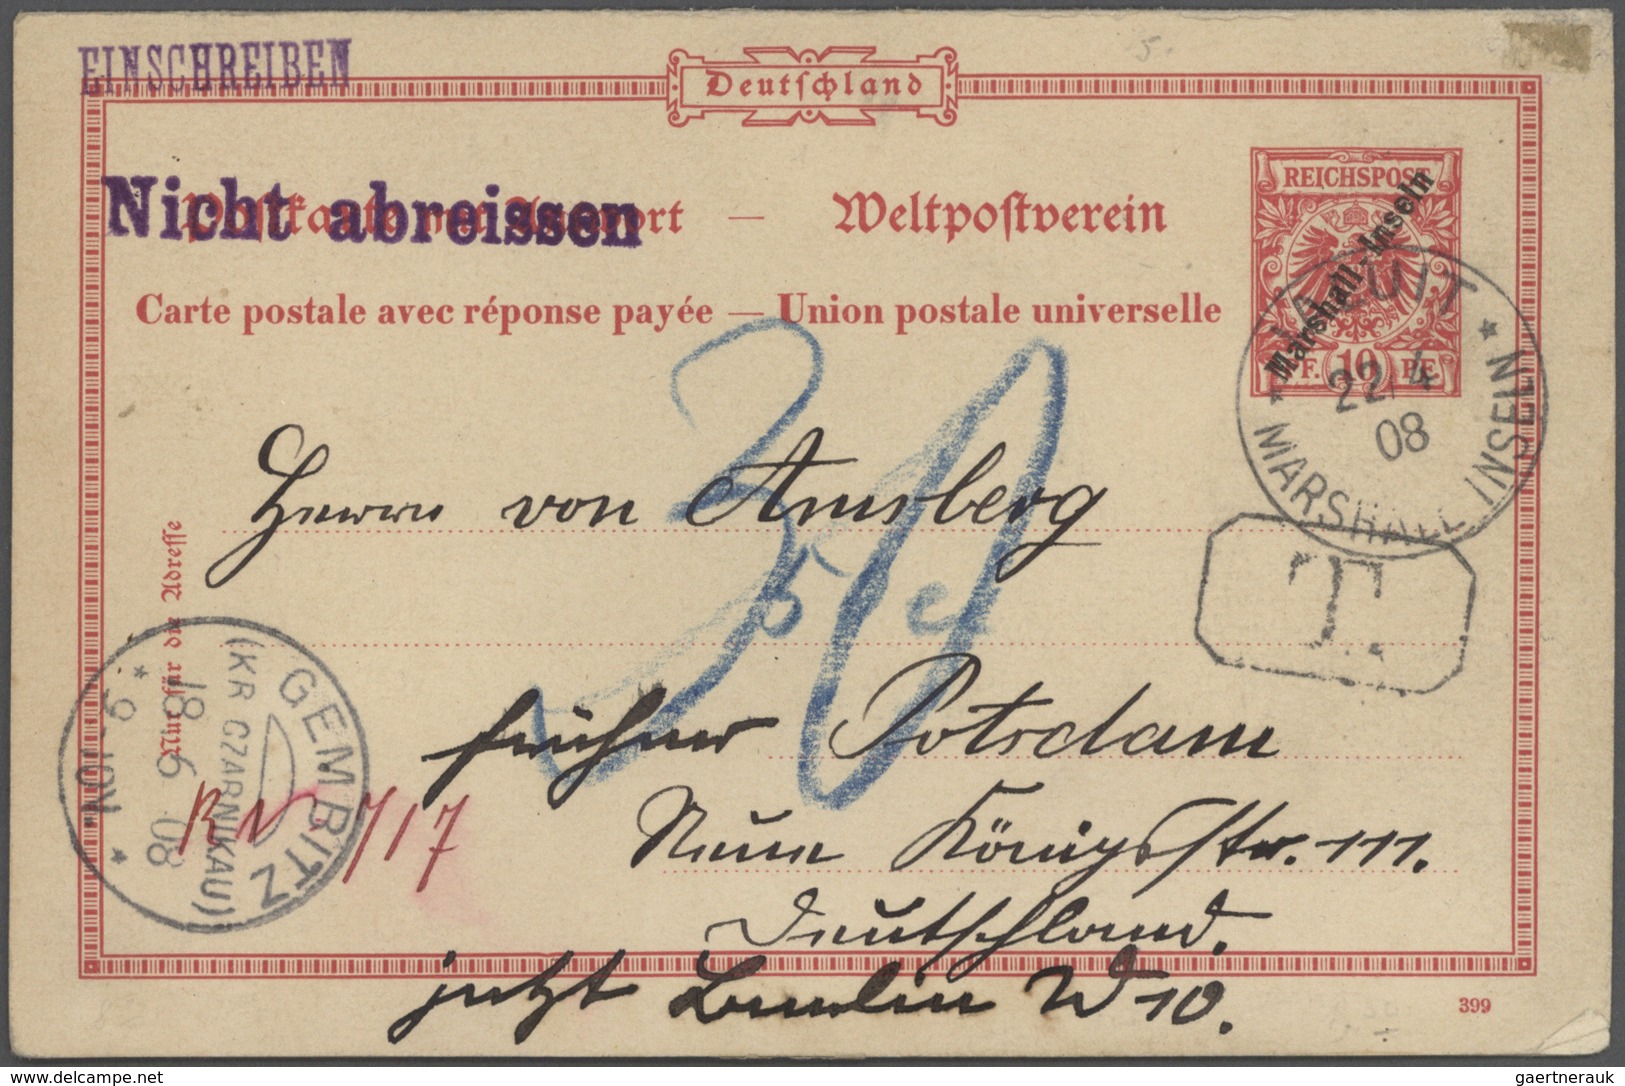 EINSCHREIBEN
Deutschland
Nicht abreissen
Postkarte mit Antwort — Weltpostverein
Carte postale avec réponse payée — Union postale universelle
REICHSPOST
Marshall-Inseln
PF. 10 PF.
JALUIT
22/4
08
* MARSHALL INSELN *
30
T.
Herrn von Amsberg
früher Potsdam
Neue Königsstr. 111.
Deutschland.
jetzt Berlin W 10.
Nur für die Adresse
GEMBITZ
(KR CZARNIKAU)
18 6 08
* *
717
399
delcampe.net
gaertnerauk